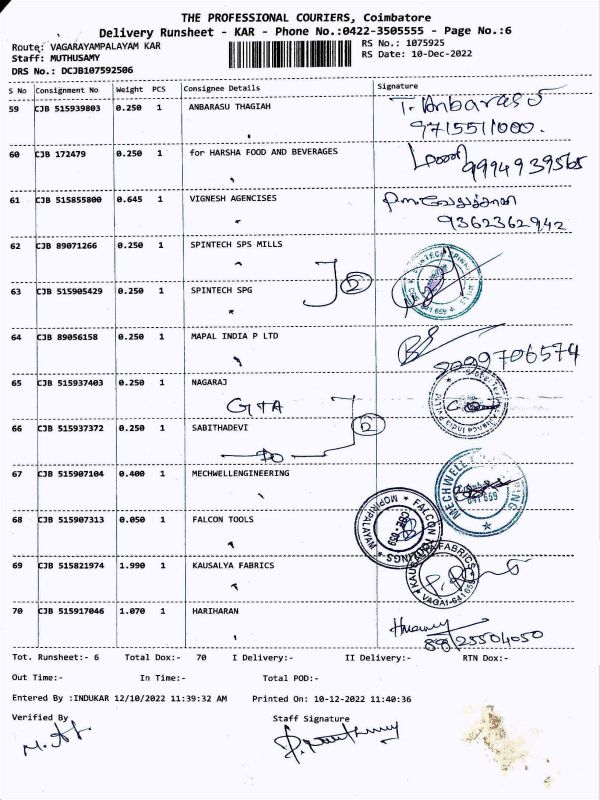 THE PROFESSIONAL COURIERS, Coimbatore
Delivery Runsheet - KAR - Phone No.:0422-3505555 - Page No.:6
Route: VAGARAYAMPALAYAM KAR
RS No.: 1075925
Staff: MUTHUSAMY
RS Date: 10-Dec-2022
DRS No.: DCJB107592506
S No Consignment No Weight PCS Consignee Details Signature
59 CJB 515939803 0.250 1 ANBARASU THAGIAH T. Anbarasu
9715511000.
60 CJB 172479 0.250 1 for HARSHA FOOD AND BEVERAGES
9994939565
61 CJB 515855800 0.645 1 VIGNESH AGENCISES
9362362942
62 CJB 89071266 0.250 1 SPINTECH SPS MILLS
63 CJB 515905429 0.250 1 SPINTECH SPG
2
64 CJB 89056158 0.250 1 MAPAL INDIA P LTD
8099706574
65 CJB 515937403 0.250 1 NAGARAJ
GTA
66 CJB 515937372 0.250 1 SABITHADEVI
2
Do
67 CJB 515907104 0.400 1 MECHWELLENGINEERING
641 659
68 CJB 515907313 0.050 1 FALCON TOOLS
FALCON
MOPIRIPALAYAM
69 CJB 515821974 1.990 1 KAUSALYA FABRICS
KAUSALYA FABRICS
VAGAI-641659
70 CJB 515917046 1.070 1 HARIHARAN
25504050
Tot. Runsheet:- 6 Total Dox:- 70 I Delivery:- II Delivery:- RTN Dox:-
Out Time:- In Time:- Total POD:-
Entered By :INDUKAR 12/10/2022 11:39:32 AM Printed On: 10-12-2022 11:40:36
Verified By Staff Signature